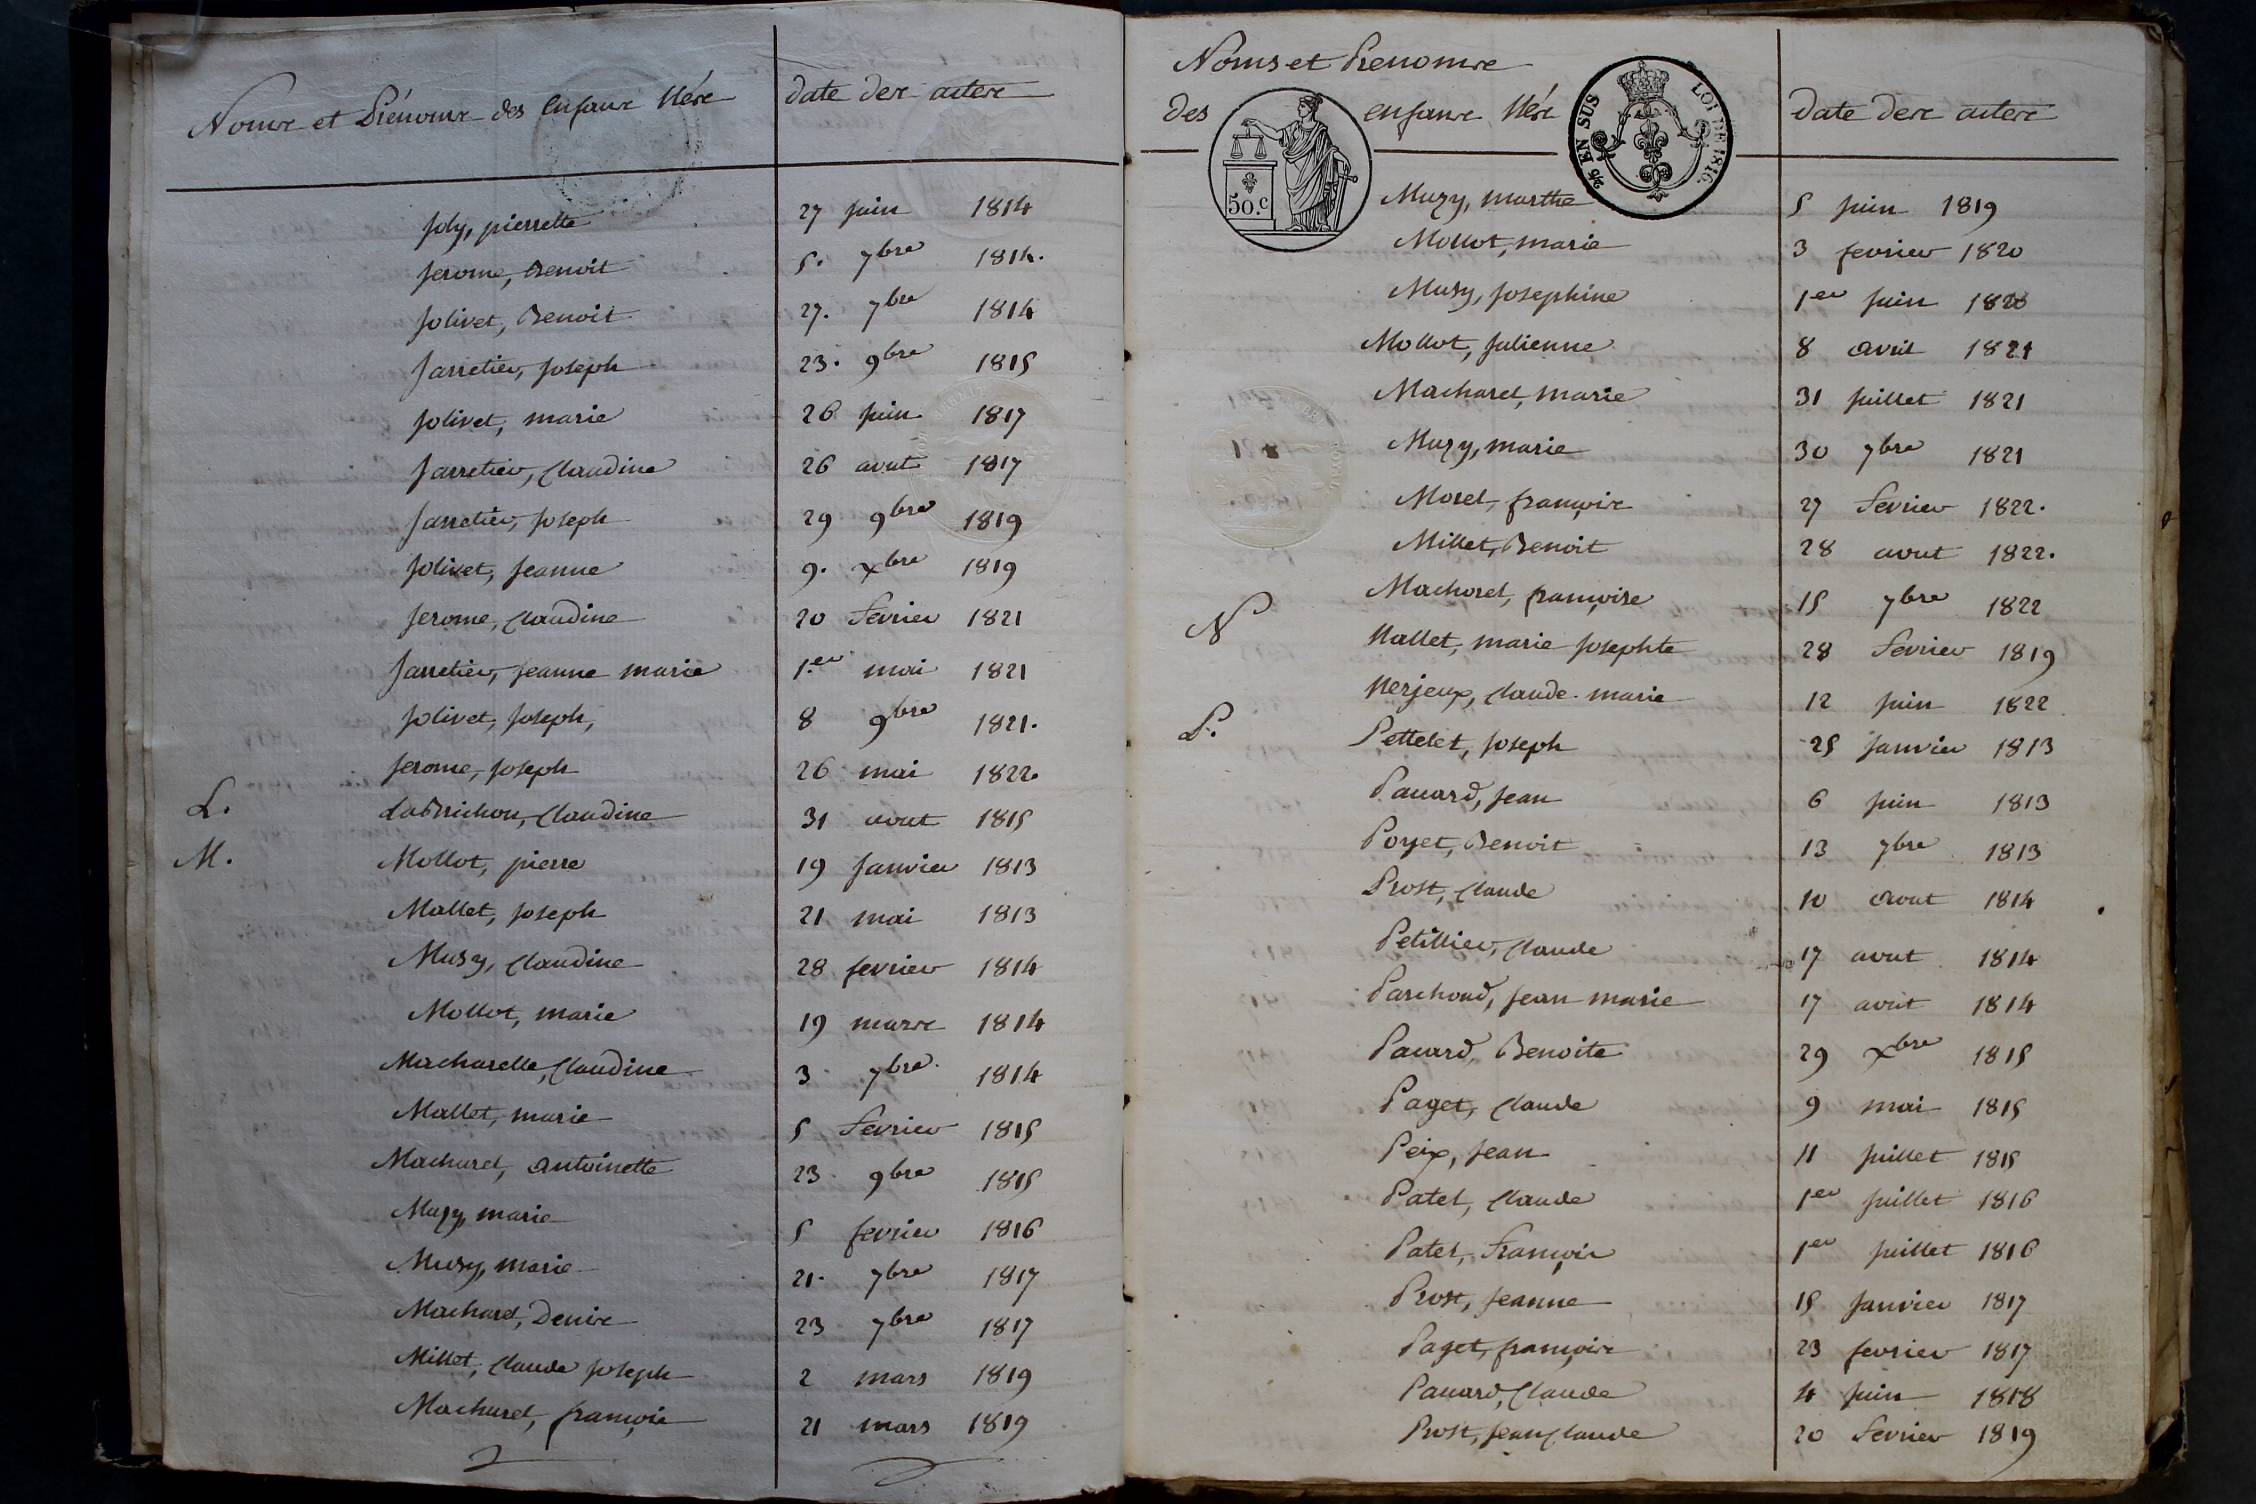 Noms et Prénoms des Enfans Nés
date des actes
Joly, pierrette 27 juin 1814
Jerome, Benoit 5. 7bre 1814.
Jolivet, Benoit 27. 7bre 1814
Jarretier, Joseph 23. 9bre 1815
Jolivet, marie 26 juin 1817
Jarretier, Claudine 26 aout 1817
Jarretier, Joseph 29 9bre 1819
Jolivet, Jeanne 9. xbre 1819
Jerome, Claudine 20 fevrier 1821
Jarretier, Jeanne marie 1er mai 1821
Jolivet, Joseph, 8 9bre 1821.
Jerome, Joseph 26 mai 1822.
L. Labrichon, Claudine 31 aout 1815
M. Mollot, pierre 19 Janvier 1813
Mallet, Joseph 21 mai 1813
Musy, Claudine 28 fevrier 1814
Mollot, marie 19 mars 1814
Macharelle, Claudine 3 7bre 1814
Mallet, marie 5 fevrier 1815
Macharel, antoinette 23 9bre 1815
Muzy, marie 5 fevrier 1816
Musy, marie 21. 7bre 1817
Macharel, Denise 23 7bre 1817
Millet, Claude Joseph 2 mars 1819
Macharel, françois 21 mars 1819
Noms et Prenoms
des enfans Nés
date des actes
50.c
2/6 EN SUS LOI DE 1816.
Muzy, marthe 5 Juin 1819
Mollot, marie 3 fevrier 1820
Musy, Josephine 1er Juin 1820
Mollot, Julienne 8 avril 1821
Macharel, marie 31 Juillet 1821
Muzy, marie 30 7bre 1821
Morel, françoise 27 fevrier 1822.
Millet, Benoit 28 aout 1822.
Macharel, françoise 15 7bre 1822
N Nallet, marie Josephte 28 fevrier 1819
Nerjeux, Claude-marie 12 Juin 1822
P. Pettelet, Joseph 25 Janvier 1813
Pauard, Jean 6 Juin 1813
Poyet, Benoit 13 7bre 1813
Prost, Claude 10 aout 1814
Petillier, Claude 17 aout 1814
Parchoud, Jean marie 17 aout 1814
Pauard, Benoite 29 xbre 1815
Paget, Claude 9 mai 1815
Peix, Jean 11 Juillet 1815
Patet, Claude 1er Juillet 1816
Patet, François 1er Juillet 1816
Prost, Jeanne 15 Janvier 1817
Paget, françoise 23 fevrier 1817
Pauard, Claude 4 Juin 1818
Prost, Jean Claude 20 fevrier 1819